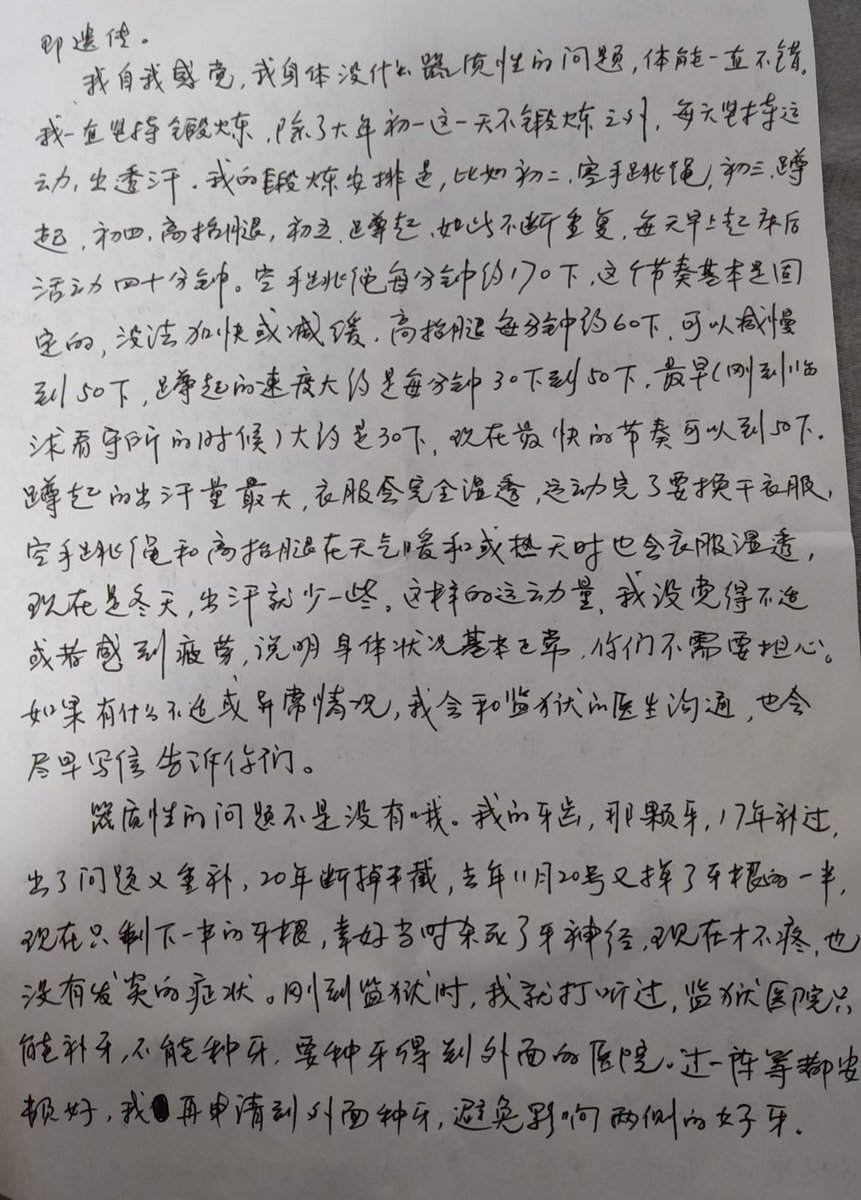 即遗传。
我自我感觉，我身体没什么器质性的问题，体能一直不错，
我一直坚持锻炼，除了大年初一这一天不锻炼之外，每天坚持运
动，出透汗。我的锻炼安排是，比如初二，空手跳绳，初三，蹲
起，初四，高抬腿，初五，蹲起，如此不断重复，每天早上起床后
活动四十分钟。空手跳绳每分钟约170下，这个节奏基本是固
定的，没法加快或减缓，高抬腿每分钟约60下，可以减慢
到50下，蹲起的速度大约是每分钟30下到50下，最早（刚到临
沭看守所的时候）大约是30下，现在最快的节奏可以到50下。
蹲起的出汗量最大，衣服会完全湿透，运动完了要换干衣服，
空手跳绳和高抬腿在天气暖和或热天时也会衣服湿透，
现在是冬天，出汗就少一些。这样的运动量，我没觉得不适
或者感到疲劳，说明身体状况基本正常，你们不需要担心。
如果有什么不适或异常情况，我会和监狱的医生沟通，也会
尽早写信告诉你们。
器质性的问题不是没有哦。我的牙齿，那颗牙，17年补过，
出了问题又重补，20年断掉半截，去年11月20号又掉了牙根的一半，
现在只剩下一半的牙根，幸好当时杀死了牙神经，现在才不疼，也
没有发炎的症状。刚到监狱时，我就打听过，监狱医院只
能补牙，不能种牙，要种牙得到外面的医院。过一阵等都安
顿好，我再申请到外面种牙，避免影响两侧的好牙。